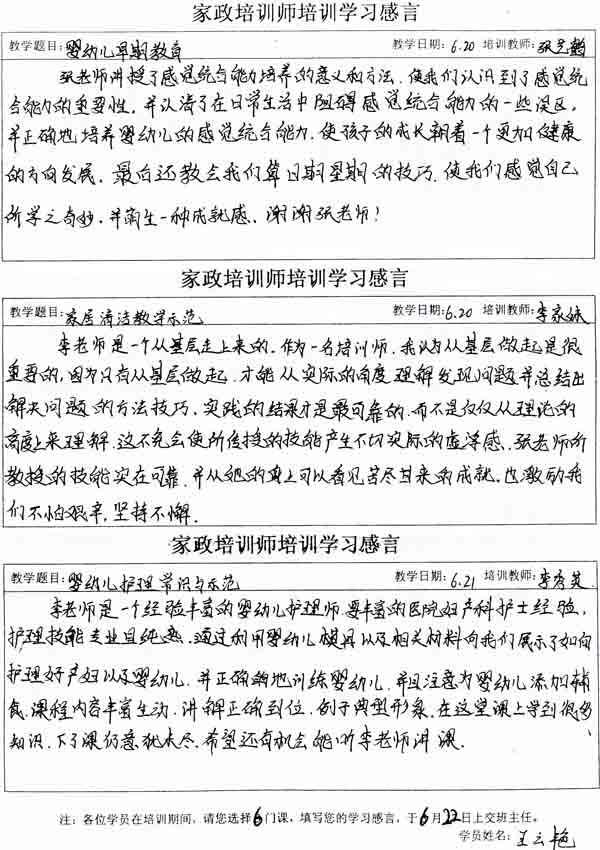 家政培训师培训学习感言
教学题目：婴幼儿早期教育 教学日期：6.20 培训教师：张
张老师讲授了感觉统合能力培养的意义和方法，使我们认识到了感觉统
合能力的重要性，并认清了在日常生活中阻碍感觉统合能力的一些误区，
并正确地培养婴幼儿的感觉统合能力，使孩子的成长朝着一个更加健康
的方向发展，最后还教会我们算日期星期的技巧，使我们感觉自己
所学之奇妙，并萌生一种成就感、谢谢张老师！
家政培训师培训学习感言
教学题目：家居清洁教学示范 教学日期：6.20 培训教师：李家妹
李老师是一个从基层走上来的，作为一名培训师，我认为从基层做起是很
重要的，因为只有从基层做起，才能从实际的角度理解发现问题并总结出
解决问题的方法技巧，实践的结果才是最可靠的，而不是仅仅从理论的
高度上来理解，这不免会使所传授的技能产生不切实际的虚浮感，张老师所
教授的技能实在可靠，并从她的身上可以看见苦尽甘来的成就，也激励我
们不怕艰辛，坚持不懈．
家政培训师培训学习感言
教学题目：婴幼儿护理常识与示范 教学日期：6.21 培训教师：李秀英
李老师是一个经验丰富的婴幼儿护理师，要丰富的医院妇产科护士经验，
护理技能专业且纯熟．通过利用婴幼儿模具以及相关材料向我们展示了如何
护理好产妇以及婴幼儿，并正确的地训练婴幼儿，并且注意为婴幼儿添加辅
食，课程内容丰富生动，讲解正确到位，例子典型形象，在这堂课上学到很多
知识，下了课仍意犹未尽，希望还有机会能听李老师讲课．
注：各位学员在培训期间，请您选择6门课，填写您的学习感言，于6月22日上交班主任。
学员姓名：王云艳